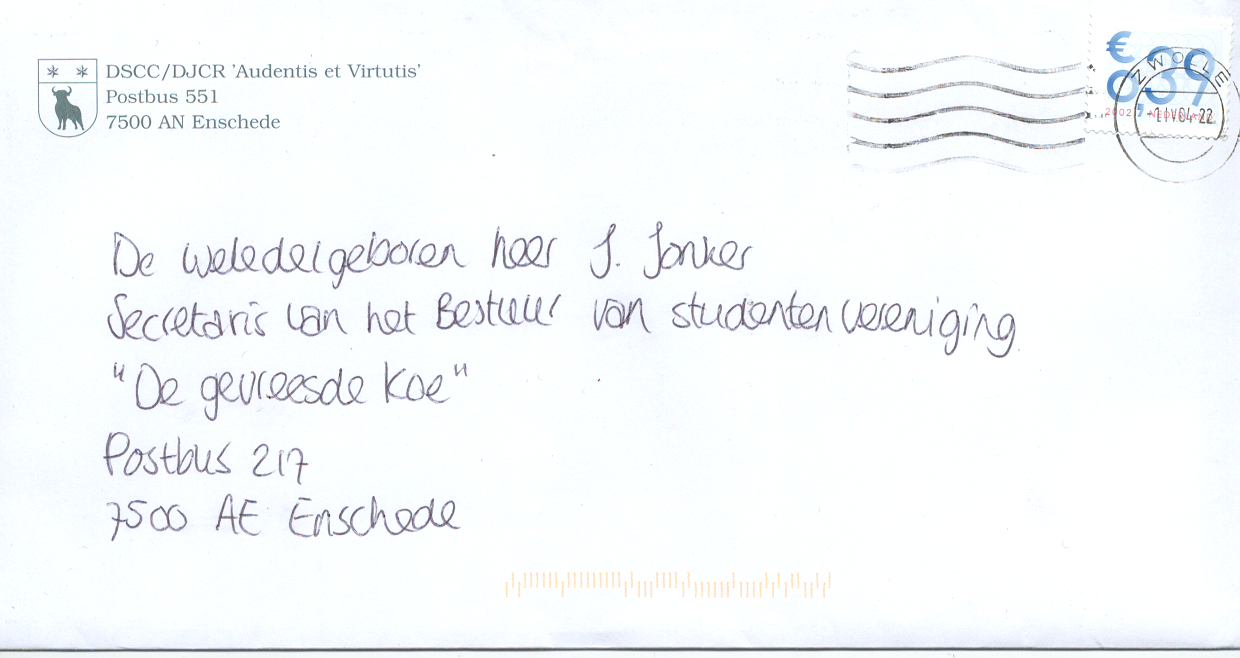 DSCC/DJCR 'Audentis et Virtutis'
Postbus 551
7500 AN Enschede
€
0,39
2002 NEDERLAND
ZWOLLE
-1.IV.04-22
De weledelgeboren heer J. Jonker
Secretaris van het Bestuur van studentenvereniging
"De gevreesde Koe"
Postbus 217
7500 AE Enschede